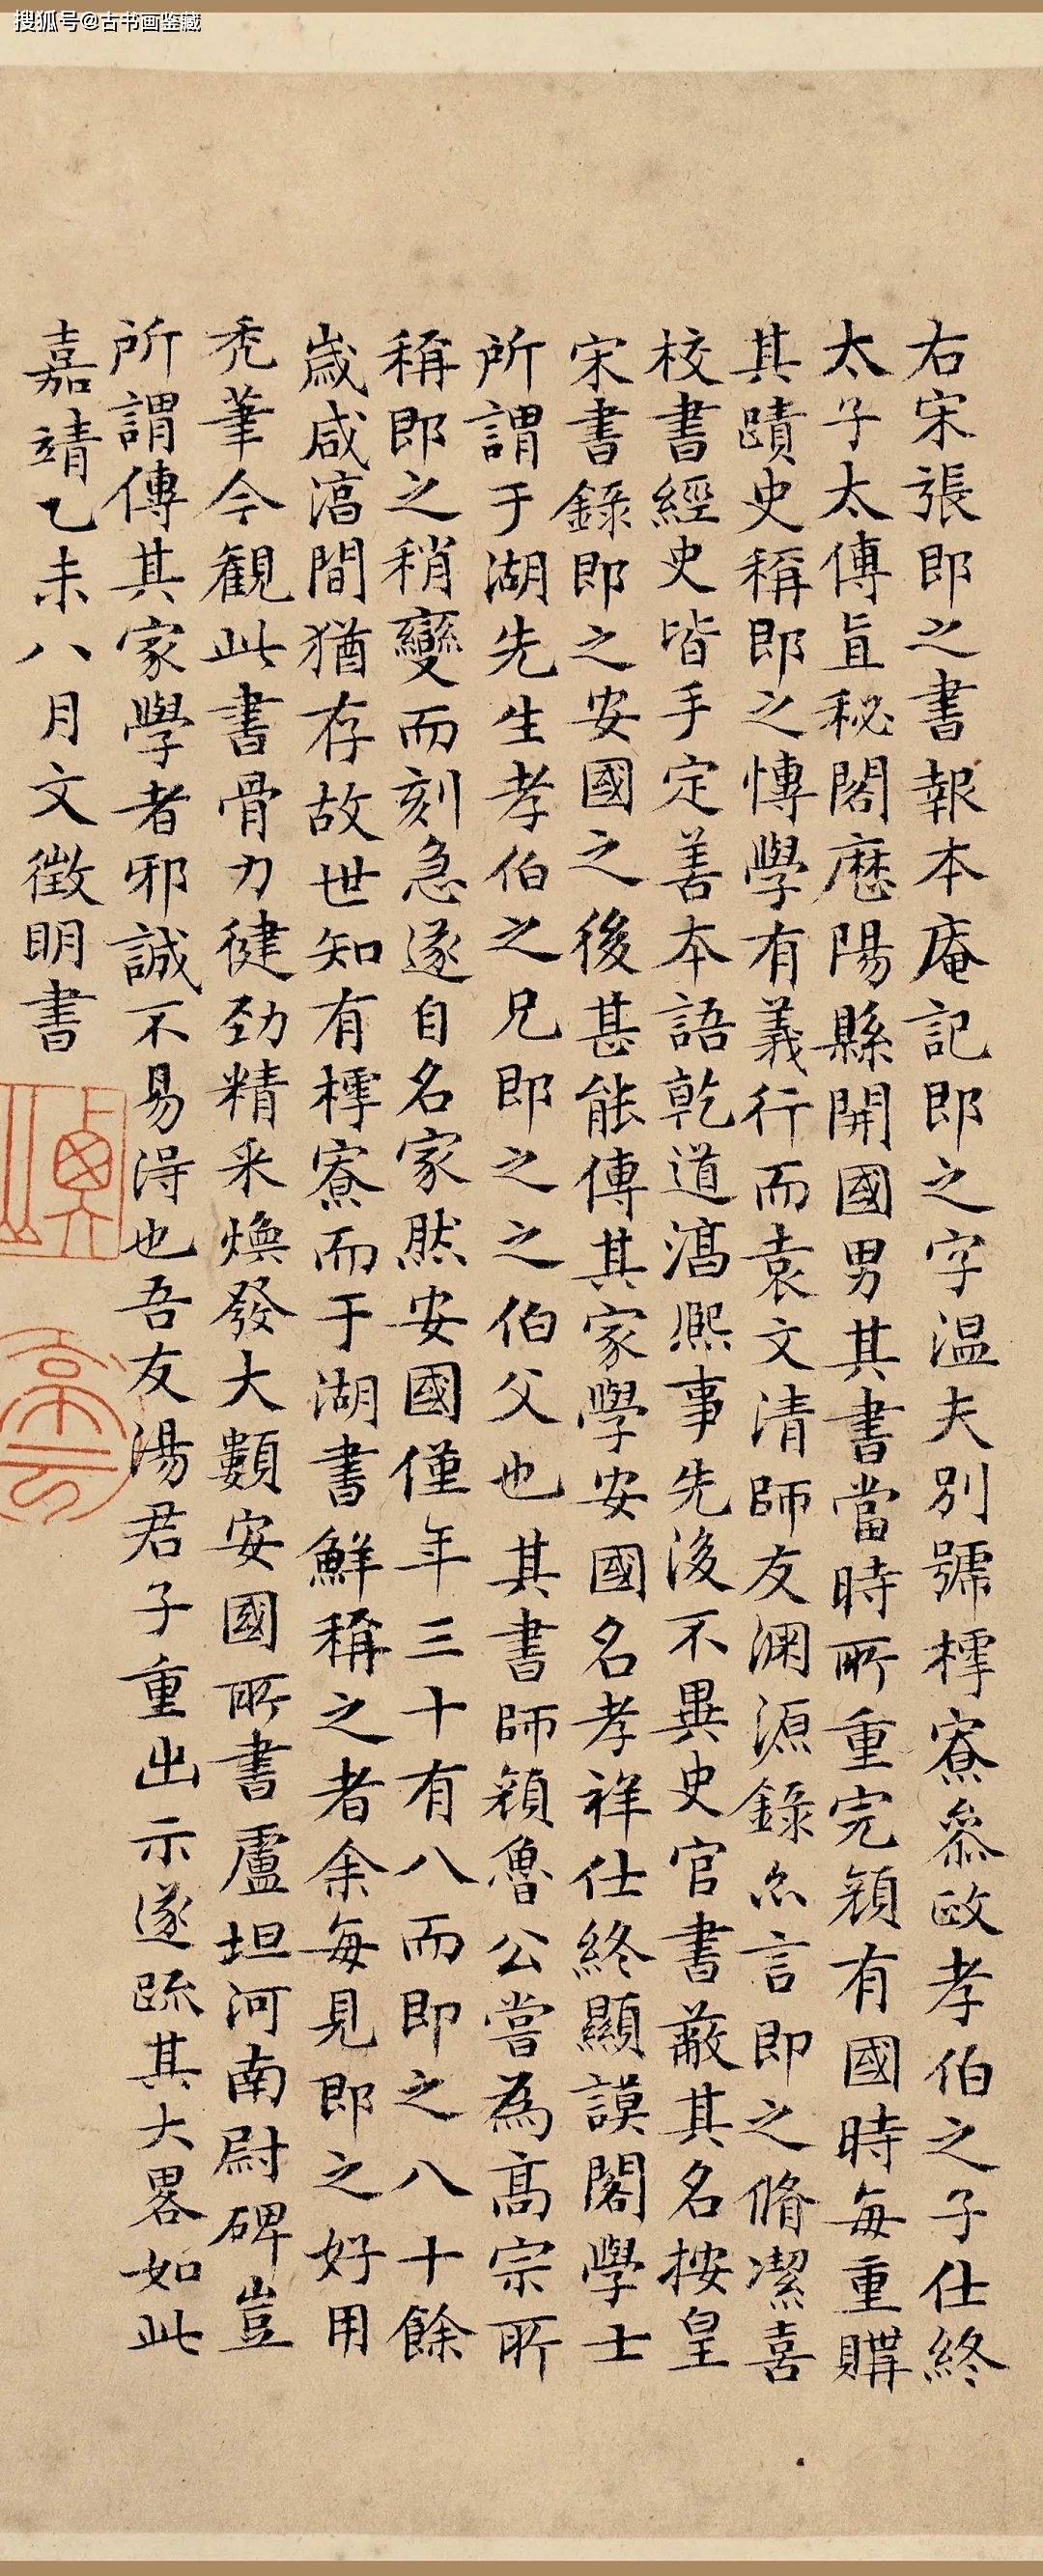 搜狐号@古书画鉴藏
右宋張即之書報本庵記即之字温夫别號樗寮叅政孝伯之子仕終
太子太傅直秘閣歷陽縣開國男其書當時所重完顔有國時每重購
其蹟史稱即之愽學有義行而袁文清師友淵源錄亦言即之脩潔喜
校書經史皆手定善本語乾道淳熙事先後不異史官書蔽其名按皇
宋書錄即之安國之後甚能傳其家學安國名孝祥仕終顯謨閣學士
所謂于湖先生孝伯之兄即之之伯父也其書師顔魯公嘗為高宗所
稱即之稍變而刻急遂自名家然安國僅年三十有八而即之八十餘
歲咸淳間猶存故世知有樗寮而于湖書鮮稱之者余每見即之好用
秃筆今觀此書骨力健劲精采煥發大類安國所書盧坦河南尉碑豈
所謂傳其家學者邪誠不易得也吾友湯君子重出示遂疏其大畧如此
嘉靖乙未八月文徵明書